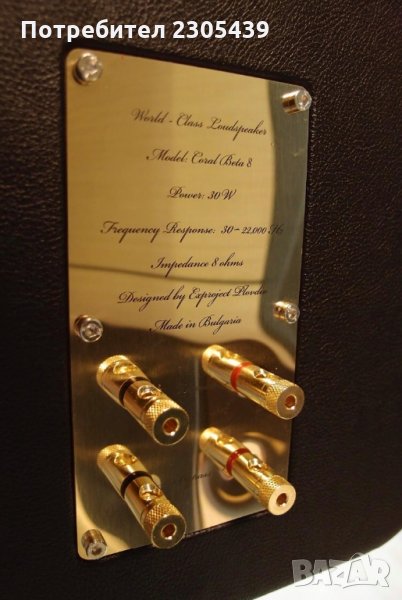 Потребител 2305439
World - Class Loudspeaker
Model: Coral Beta 8
Power: 30W
Frequency Response: 30-22,000 Hz
Impedance 8 ohms
Designed by Exproject Plovdiv
Made in Bulgaria
BAZAR